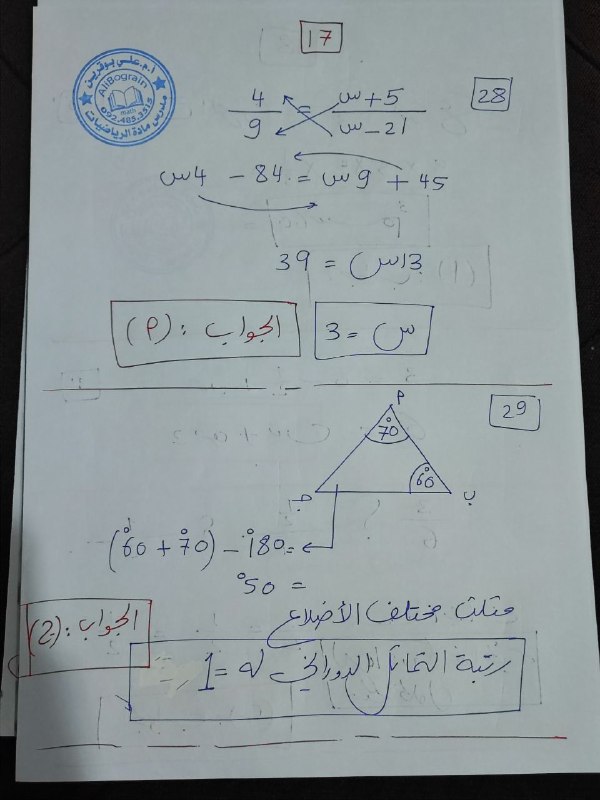 17
ا.م.علي بوقرين
AliBograin
math
092.485.3515
مدرس مادة الرياضيات
28
س+5 / س−21 = 4 / 9
45 + 9س = 84 − 4س
13س = 39
س = 3
الجواب : (P)
29
P
70°
60°
ب
جـ
= 180° − (70° + 60°)
= 50°
مثلث مختلف الأضلاع
الجواب : (ج)
رتبة التماثل الدوراني له = 1